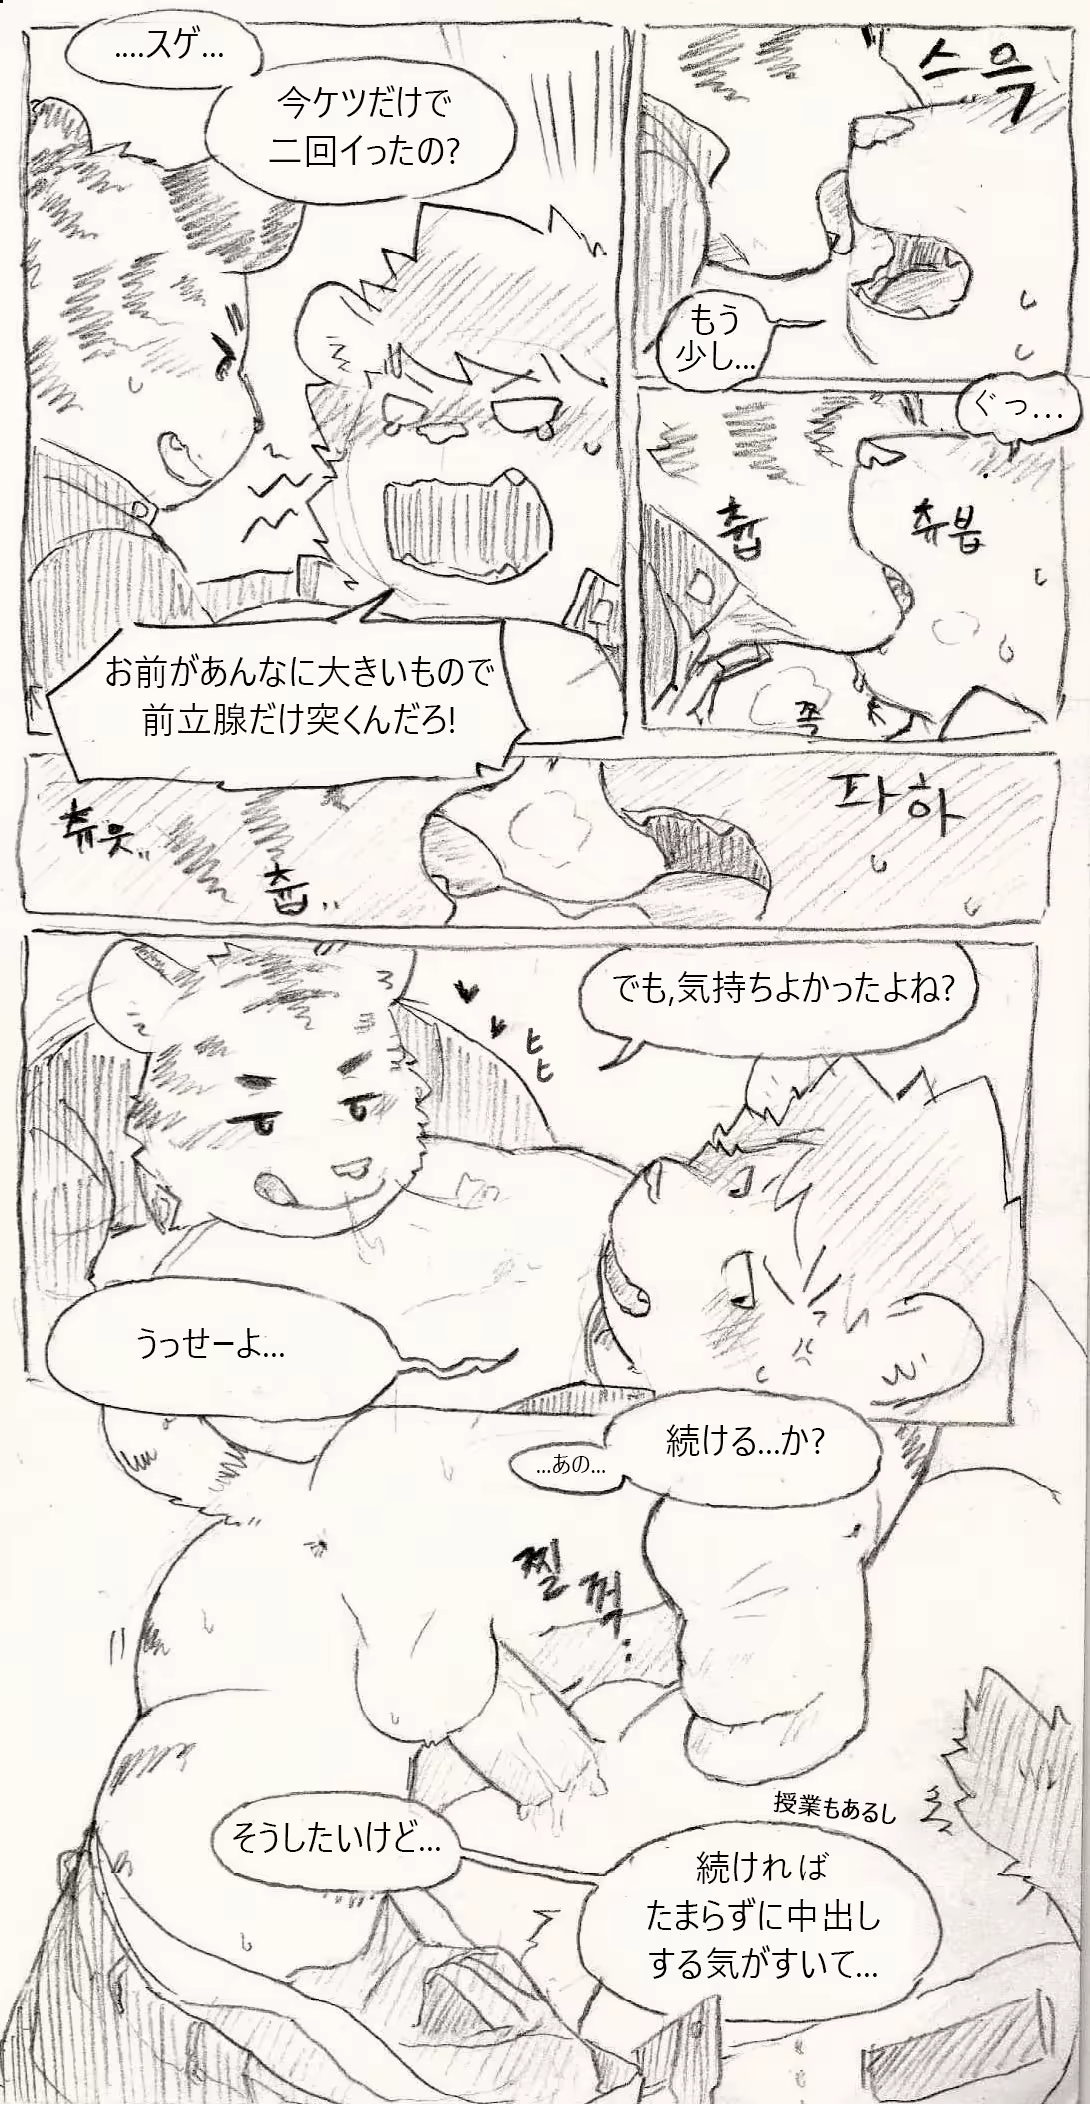 ....スゲ...
今ケツだけで
二回イったの?
스윽
もう
少し...
ぐっ...
츕
츄붑
쪽
お前があんなに大きいもので
前立腺だけ突くんだろ!
츄읏..
츕..
파하
でも,気持ちよかったよね?
ヒヒ
うっせーよ...
...あの...
続ける...か?
찔꺽...
そうしたいけど...
授業もあるし
続ければ
たまらずに中出し
する気がすいて...